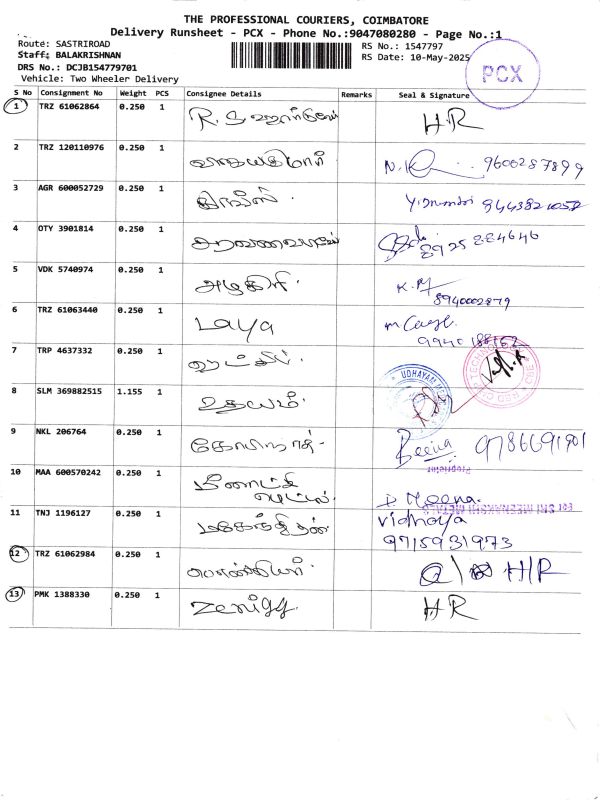 THE PROFESSIONAL COURIERS, COIMBATORE
Delivery Runsheet - PCX - Phone No.:9047080280 - Page No.:1
Route: SASTRIROAD
RS No.: 1547797
Staff: BALAKRISHNAN
RS Date: 10-May-2025
DRS No.: DCJB154779701
PCX
Vehicle: Two Wheeler Delivery
S No Consignment No Weight PCS Consignee Details Remarks Seal & Signature
1 TRZ 61062864 0.250 1 R. S H.R
2 TRZ 120110976 0.250 1 N.K 9600287899
3 AGR 600052729 0.250 1
4 OTY 3901814 0.250 1 8925884646
5 VDK 5740974 0.250 1 அழகிரி. K.M
8940002879
6 TRZ 61063440 0.250 1 Laya
7 TRP 4637332 0.250 1
8 SLM 369882515 1.155 1 உதயம். UDHAYAM
9 NKL 206764 0.250 1 கோபிநாத். Beena 9786691901
Proprietor
10 MAA 600570242 0.250 1 மீனாட்சி மெட்டல். Meena.
For SRI MEENAKSHI METALS
11 TNJ 1196127 0.250 1 Vidhaya
9715931973
12 TRZ 61062984 0.250 1 H/R
13 PMK 1388330 0.250 1 Zenigg. HR